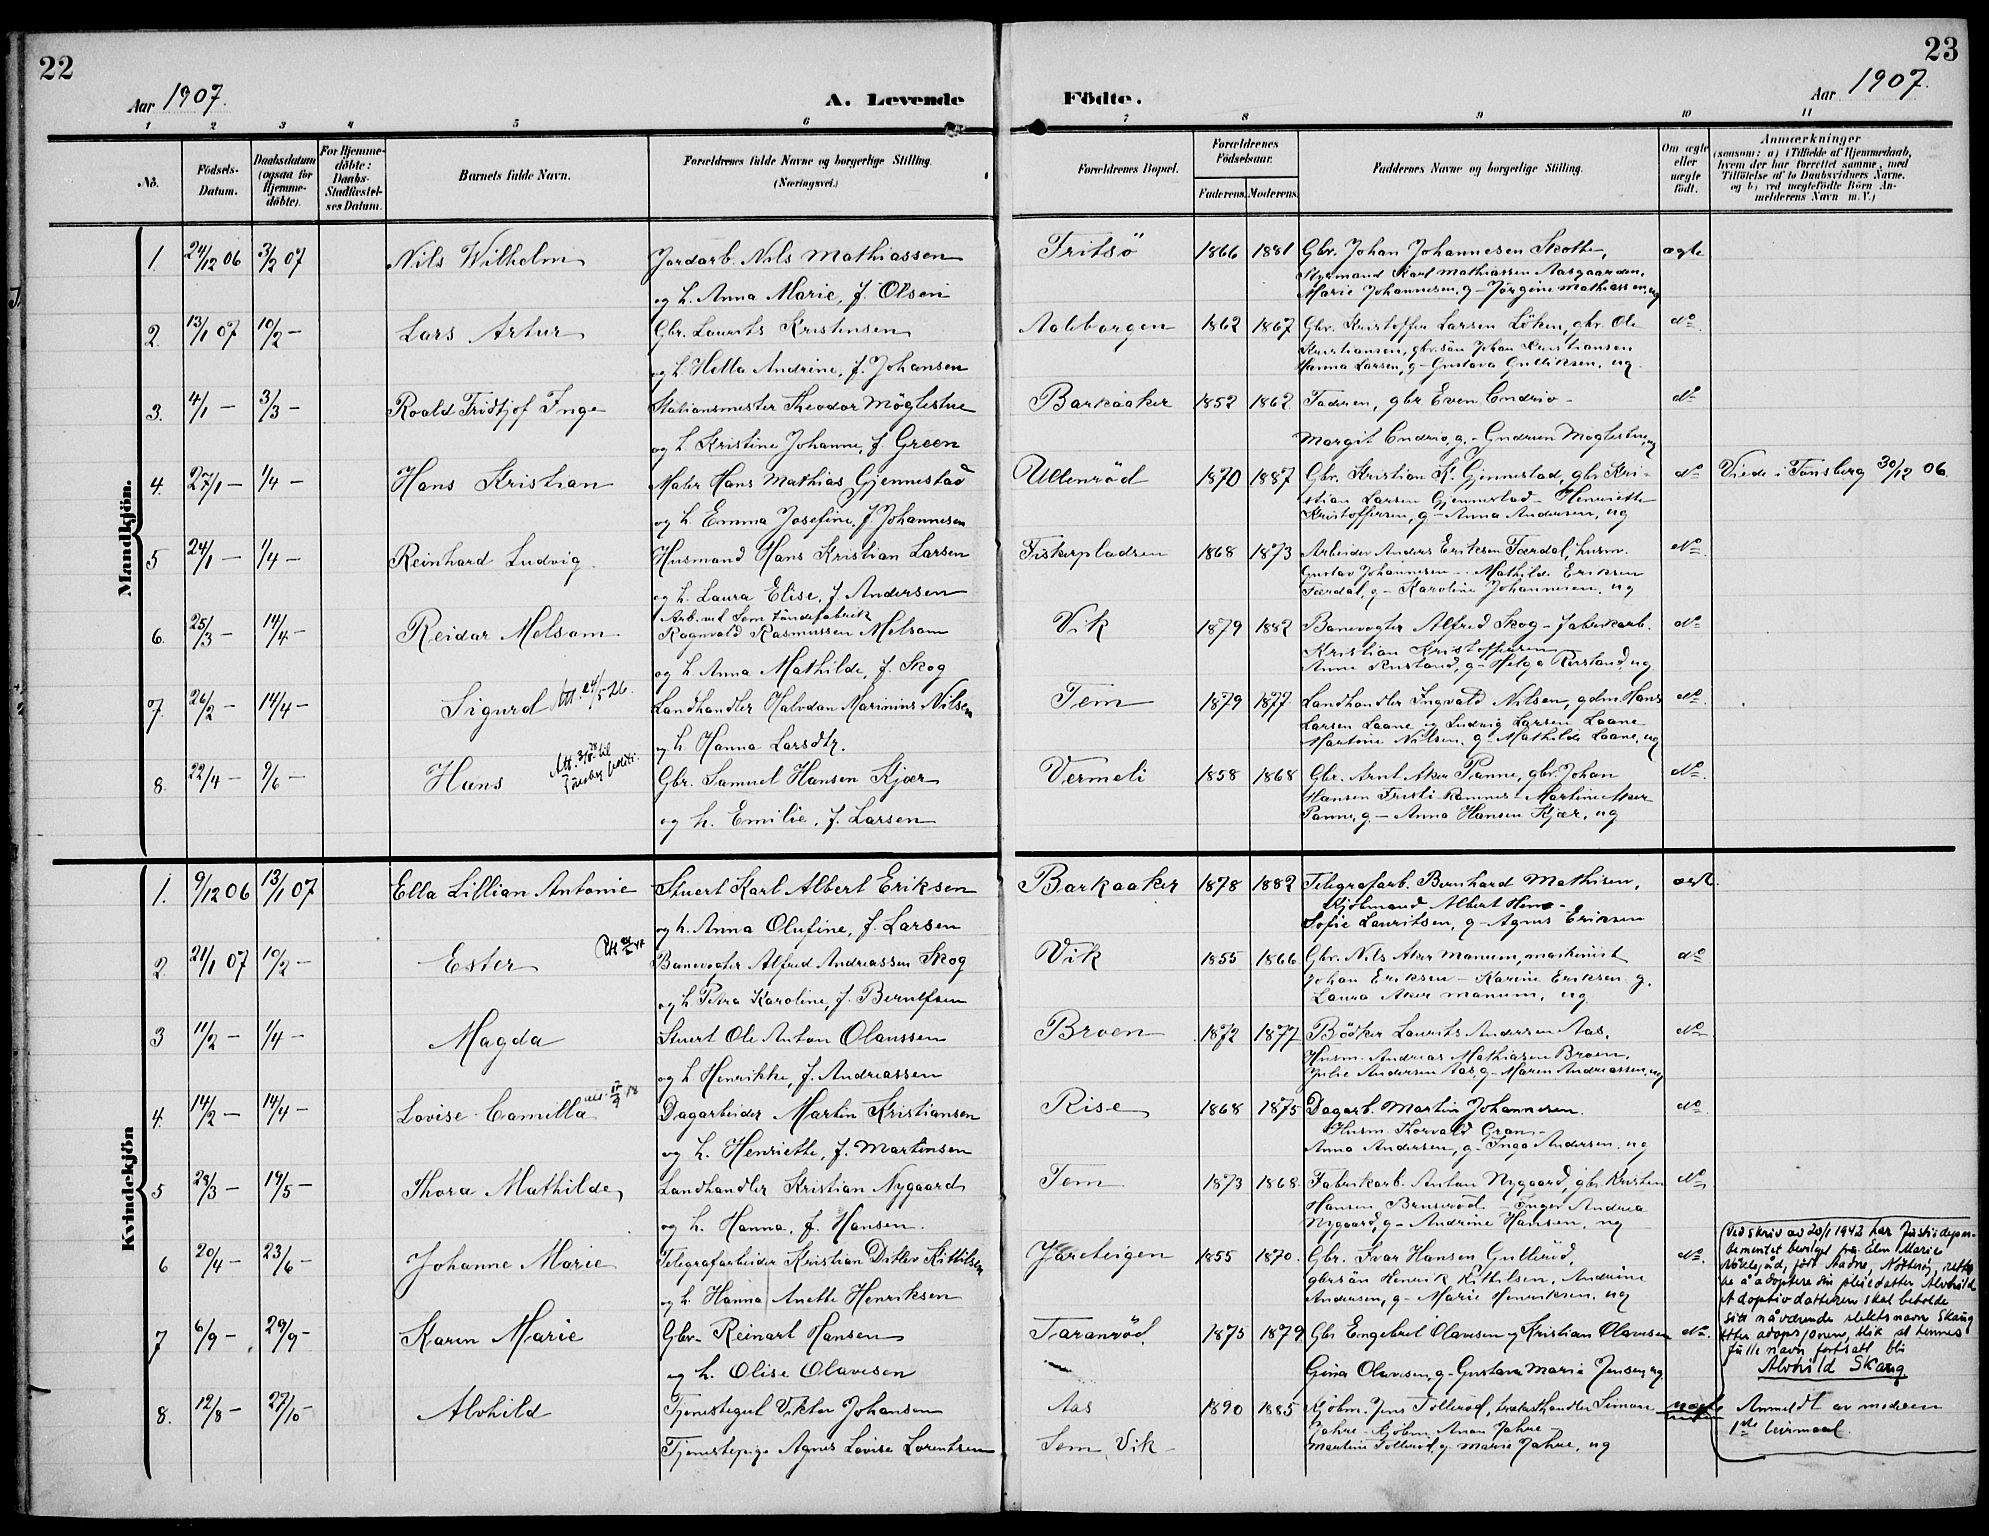 22
23
Aar 1907.
A. Levende
Födte.
Aar 1907.
1 2 3 4 5 6 7 8 9 10 11
No.
Födsels-Datum.
Daabsdatum (ogsaa for Hjemme-döbte).
For Hjemme-döbte: Daabs-Stadfæstel-ses Datum.
Barnets fulde Navn.
Forældrenes fulde Navne og borgerlige Stilling.
(Næringsvei.)
Forældrenes Bopæl.
Forældrenes Födselsaar.
Faderens. Moderens.
Faddernes Navne og borgerlige Stilling.
Om ægte eller uægte födt.
Anmærkninger
(saasom: a) i Tilfælde af Hjemmedaab,
hvem der har forrettet samme, med
Tilföielse af to Daabsvidners Navne.
og b) ved uægtefödte Börn An-
melderens Navn m. V.)
Mandkjön.
1. 24/12 06 3/2 07 Nils Wilhelm Jordarb. Nils Mathiassen Fritsö 1866 1881 Gbr. Johan Johannesen Skotte, ægte
Styrmand Karl Mathiassen Aasgaarden,
og h. Anna Marie, f. Olsen Marie Johannesen, g – Jörgine Mathiassen, ug
2. 13/1 07 10/2 – Lars Artur Gbr. Laurits Kristensen 1862 1867 Gbr. Kristoffer Larsen Löken, gbr. Ole do
Kristiansen, gbr. sön Johan Kristiansen
og h. Hella Andrine, f. Johansen Hanna Larsen, g – Gustava Gulliksen, ug.
3. 4/1 – 3/3 – Roald Fridtjof Inge Stationsmester Theodor Möglestue Barkaaker 1852 1862 Faderen, gbr. Even Endrið – do
og h. Kristine Johanne, f. Green Margit Endrið, g. – Gudrun Möglestue, ug
4. 27/1 – 1/4 – Hans Kristian Maler Hans Mathias Gjennestad Ullenröd 1870 1887 Gbr. Kristian K. Gjennestad, gbr. Kri- do Viede i Tönsberg 30/12 06.
stian Larsen Gjennestad – Henriette
og h. Emma Josefine, f. Johannesen Kristoffersen, g – Anna Andersen, ug
5 24/1 – 1/4 – Reinhard Ludvig. Husmand Hans Kristian Larsen Fiskerpladsen 1868 1873 Arbeider Anders Eriksen Færdal, husm. do
Gustav Johannesen – Mathilde Eriksen
og h. Laura Elise, f. Andersen Færdal, g – Karoline Johannesen, ug
Arb. ved Sem Töndefabrik
6. 25/3 – 14/4 – Reidar Melsom Ragnvald Rasmussen Melsom Vik 1879 1882 Banevogter Alfred Skog – fabrikarb. do
Kristian Kristoffersen
og h. Anna Mathilde, f. Skog Anne Rustand, g – Helga Rustand, ug
7. 26/2 – 14/4 – Sigurd Att. 24/5-26. Landhandler Halvdan Marinius Nilsen Tem 1879 1877 Landhandler Ingvald Nilsen, gdm. Hans do
Larsen Laane og Ludvig Larsen Laane
og h. Hanna Larsdtr. Martine Nilsen, g – Mathilde Laane, ug
8. 22/4 – 9/6 – Hans Gbr. Samuel Hansen Kjær Vermeli 1858 1868 Gbr. Arnt Aker Panne, gbr. Johan do
Hansen Fresti Rammes – Martine Aker
og h. Emilie, f. Larsen Panne, g – Anna Hansen Kjær, ug
Kvindekjön
1. 9/12 06 13/1 07 Ella Lillian Antonie Stuert Karl Albert Eriksen Barkaaker 1878 1882 Telegrafarb. Bernhard Mathisen, ægt.
Kjöbmand Albert Hem –
og h. Anna Olufine, f. Larsen Sofie Lauritsen, g – Agnes Eriksen
2. 21/1 07 10/2 – Ester Banevogter Alfred Andreassen Skog Vik 1855 1866 Gbr. Nils Aker Manum, maskinist do
Johan Eriksen – Karine Eriksen, g.
og h. Petra Karoline, f. Berntsen Laura Aker Manum, ug
3 11/2 – 1/4 – Magda Stuert Ole Anton Olaussen Broen 1872 1877 Bödker Laurits Andersen Aas, do
Husm. Andreas Mathiasen Broen,
og h. Henrikke, f. Andreassen Julie Andersen Aas, g – Maren Andreassen, ug
4. 14/2 – 14/4 – Lovise Camilla Dagarbeider Martin Kristiansen Rise 1868 1875 Dagarb. Martin Johannesen. do
Husm. Torvald Gran –
og h. Henriette, f. Martinsen Anna Andersen, g – Inga Andersen, ug
5 28/3 – 19/5 – Thora Mathilde Landhandler Kristian Nygaard Tem 1873 1868 Fabrikarb. Anton Nygaard, gbr. Kristen do
Hansen Bruseröd – Inger Andrea
og h. Hanna, f. Hansen. Nygaard, g – Andrine Hansen, ug
6 20/4 – 23/6 – Johanne Marie Telegrafarbeider Kristian Ditlev Kittilsen Jareteigen 1855 1870. Gbr. Ivar Hansen Gulleröd, do
gbrsön Henrik Kittilsen, Andrine
og h. Hanna Anette Henriksen Andersen, g – Marie Henriksen, ug
7 6/9 – 29/9 – Karen Marie Gbr. Reinart Hansen Taranröd 1875 1879 Gbr. Engebret Olavesen og Kristian Olavesen do
og h. Olise Olavesen Gina Olavesen, g – Gustava Marie Jensen, ug
8. 12/8 – 27/10 – Alvhild Tjenestegut Viktor Johansen Aas 1890 1885 Kjöbm. Jens Tolleröd, trælasthandler Simon uægte Anmeldt av moderen
Jahre – Kjöbm. Anan Jahre – 1ste leiermaal.
Tjenestepige Agnes Lovise Lorentsen Sem, Vik – Martine Tolleröd, g – Marie Jahre, ug
Ved skriv av 20/1 1942 har Justisdepar-
tementet bevilget fru Elen Marie
födt Aadne, Nötteröy, rett
til å adoptere sin pleiedatter Alvhild.
Adoptivdatteren skal beholde
sitt nåværende slektsnavn Skaug
etter adopsjonen, slik at hennes
fulle navn fortsatt bli
Alvhild Skaug